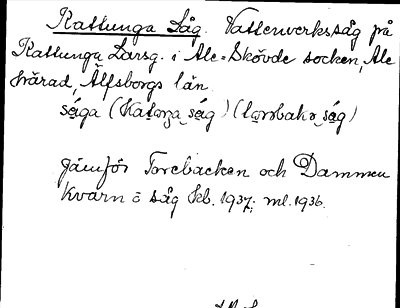 Kattunga Såg. Vattenverkssåg på
Kattunga Larsg. i Ale-Skövde socken, Ale
härad, Älfsborgs län.
såga (Katånga såg) (
Jämför Torebacken och Dammen
Kvarn o såg kb. 1937; ml. 1936.